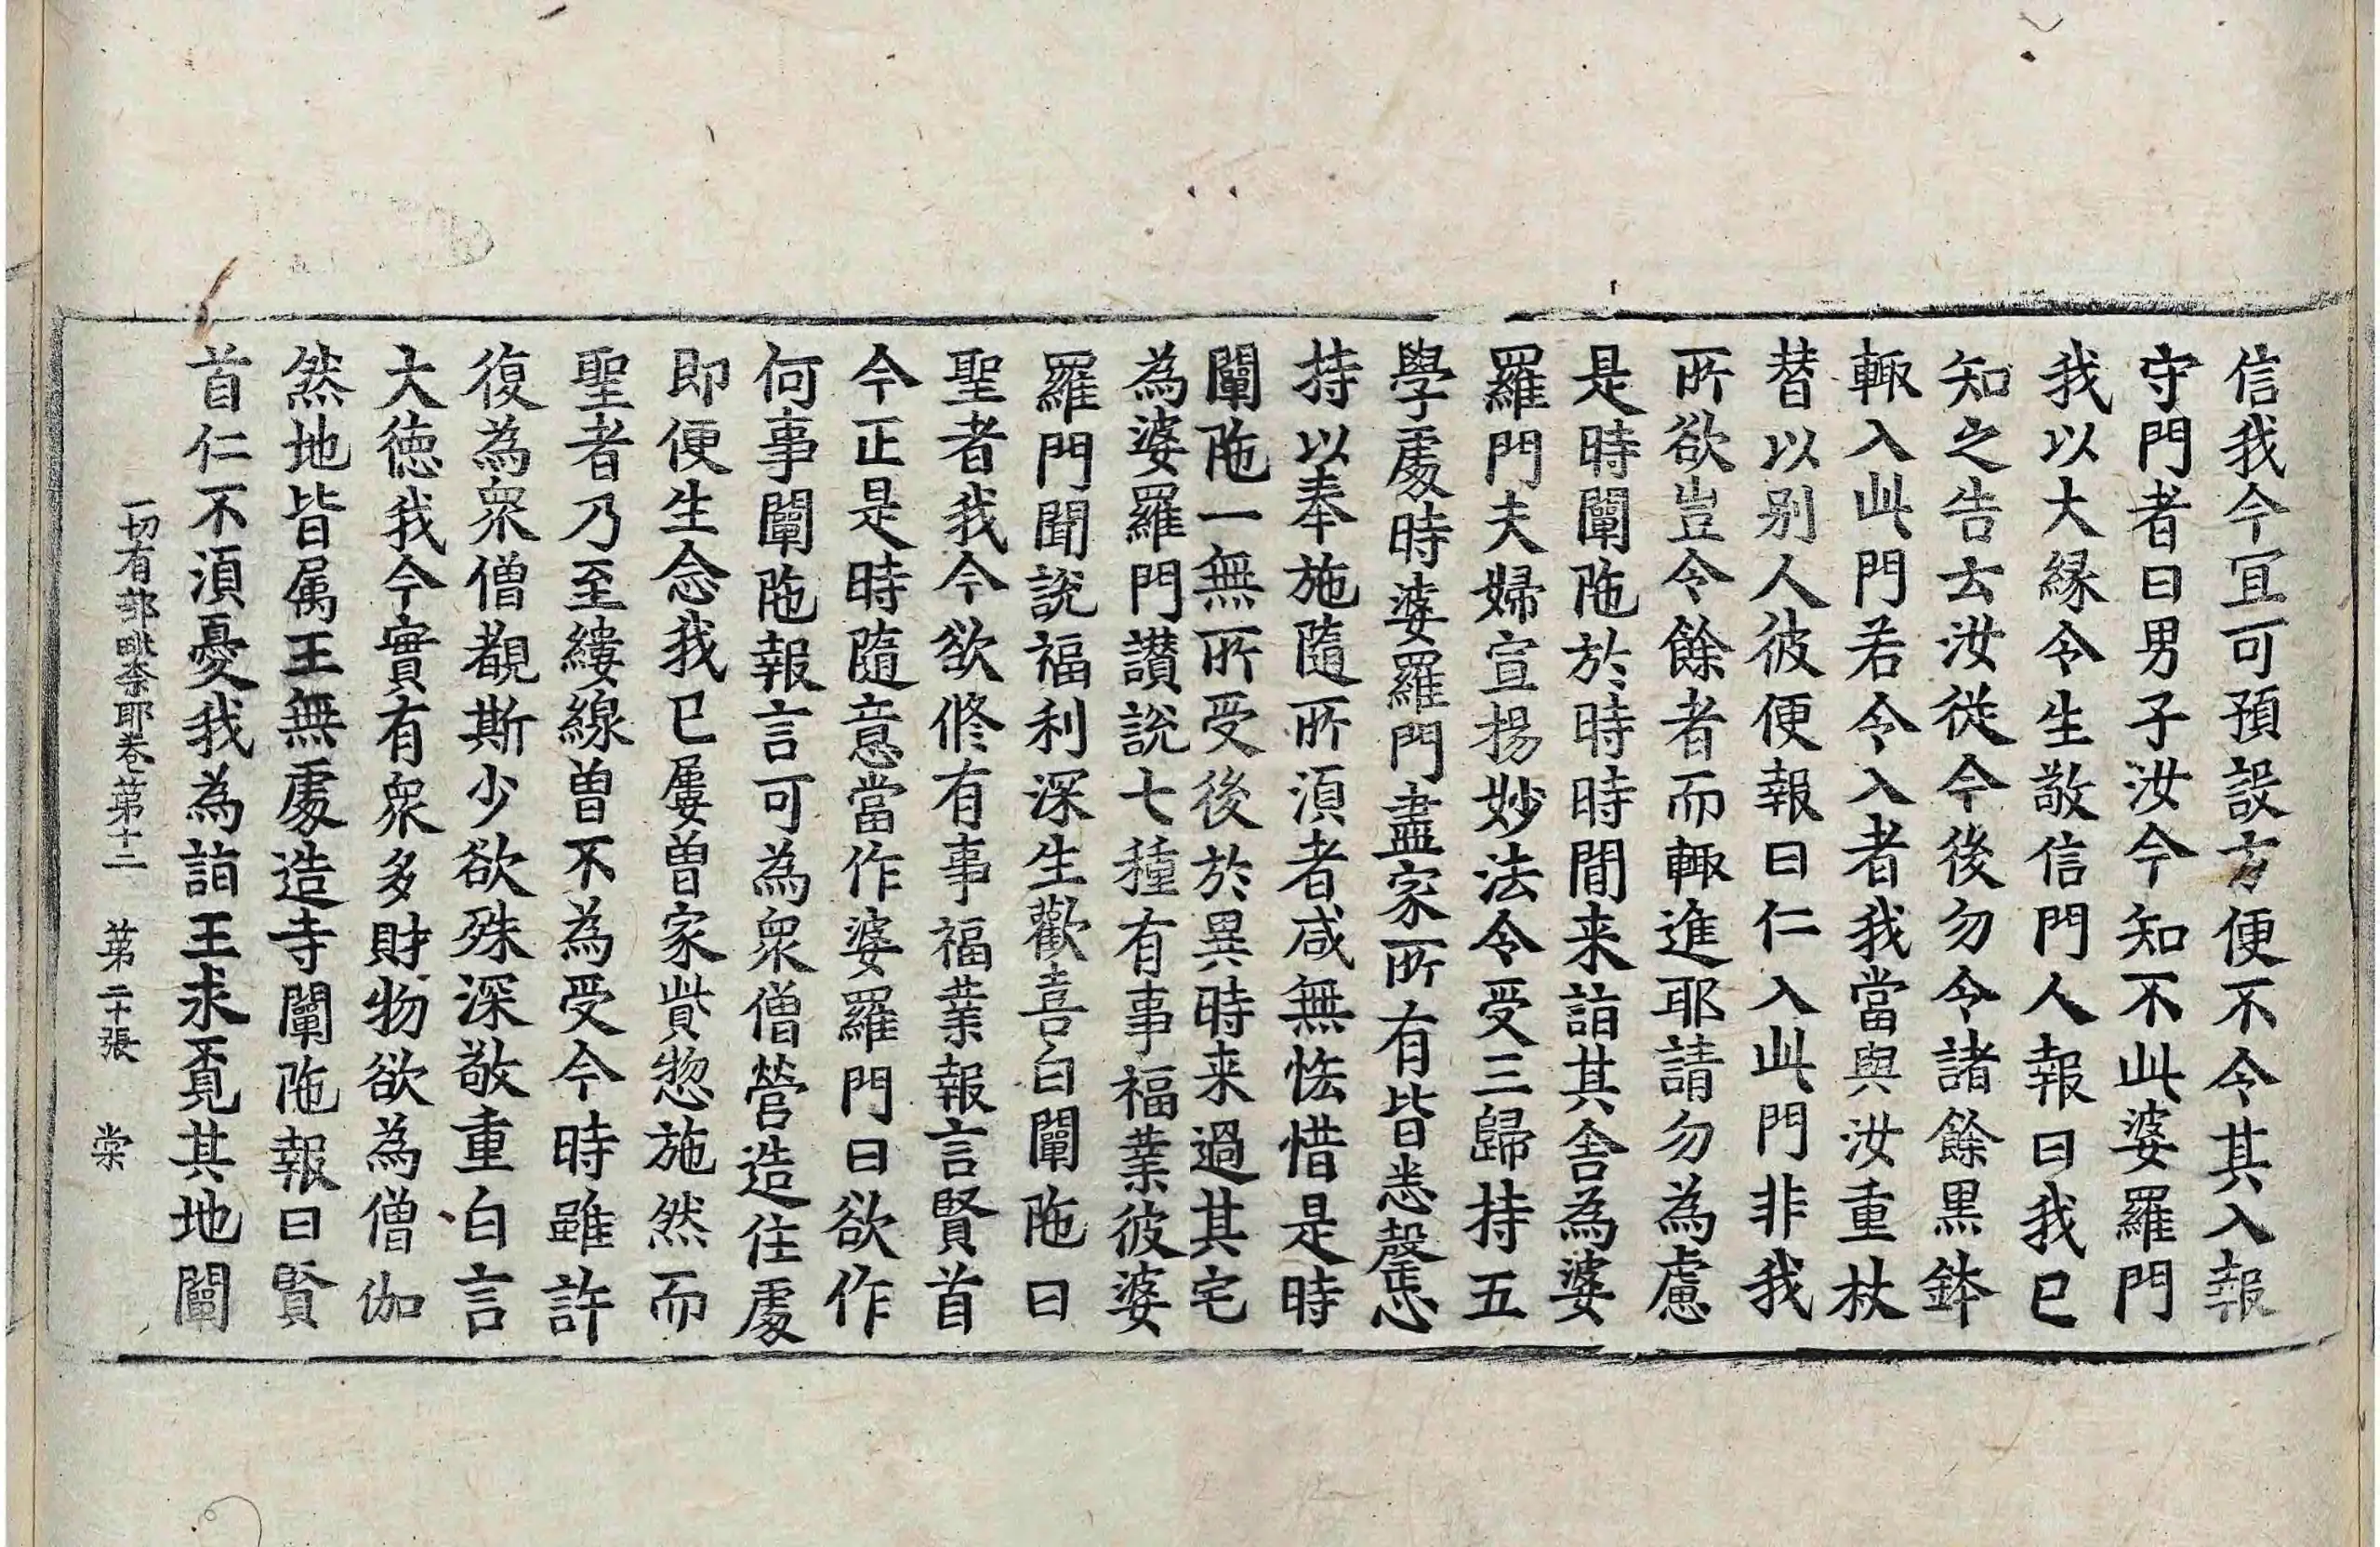 信我今冝可預設方便不令其入報
守門者曰男子汝今知不此婆羅門
我以大緣令生敬信門人報曰我已
知之告去汝從今後勿令諸餘黒鉢
輙入此門若令入者我當與汝重杖
替以别人彼便報曰仁入此門非我
所欲豈令餘者而輙進耶請勿為慮
是時闡陁於時時間来詣其舎為婆
羅門夫婦宣揚妙法令受三歸持五
學處時婆羅門盡家所有皆悉罄志
持以奉施隨所湏者咸無恡惜是時
闡陁一無所受後於異時来過其宅
為婆羅門讃說七種有事福業彼婆
羅門聞說福利深生歡喜白闡陁曰
聖者我今欲修有事福業報言賢首
今正是時隨意當作婆羅門曰欲作
何事闡陁報言可為衆僧營造住處
即便生念我已屢曾家貲惣施然而
聖者乃至縷線曾不為受今時雖許
復為衆僧覩斯少欲殊深敬重白言
大徳我今實有衆多財物欲為僧伽
然地皆属王無處造寺闡陁報曰賢
首仁不湏憂我為詣王求覓其地闡
一切有部毗奈耶卷第十二 第二十張 棠